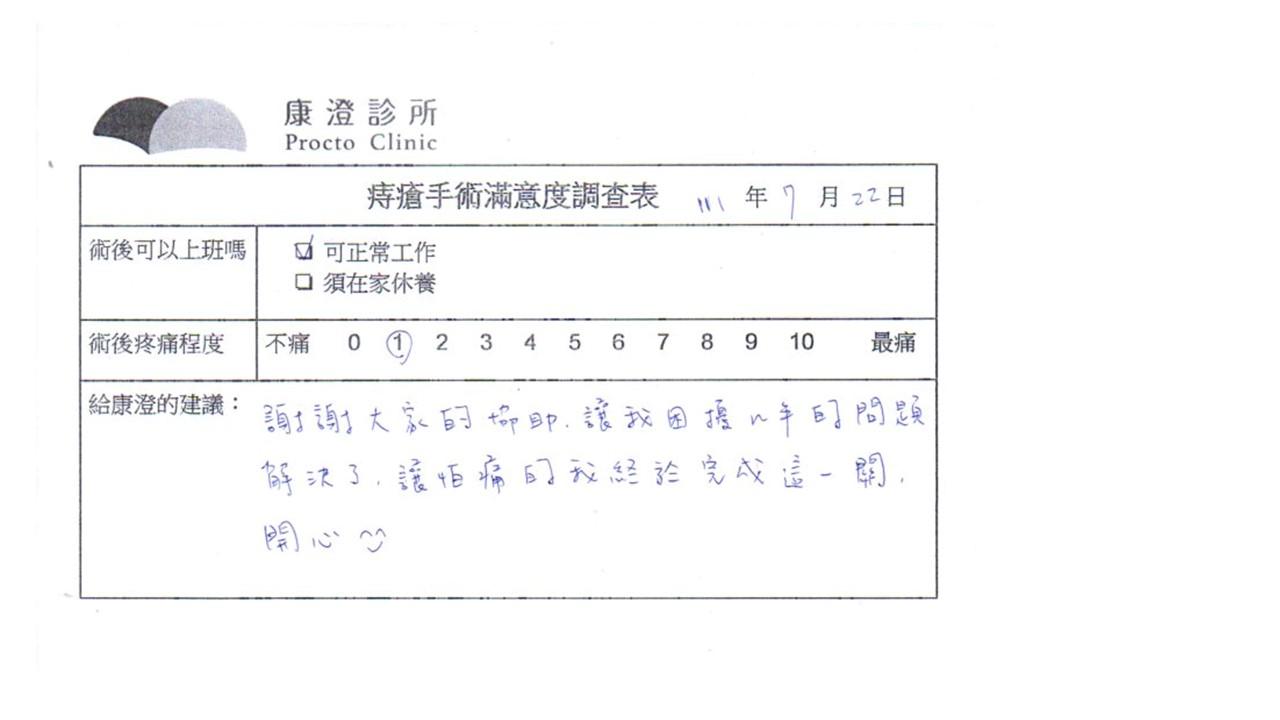 康澄診所
Procto Clinic
痔瘡手術滿意度調查表 111 年 7 月 22 日
術後可以上班嗎 ☑ 可正常工作
☐ 須在家休養
術後疼痛程度 不痛 0 1 2 3 4 5 6 7 8 9 10 最痛
給康澄的建議：
謝謝大家的協助，讓我困擾n年的問題
解決了，讓怕痛的我終於完成這一關，
開心